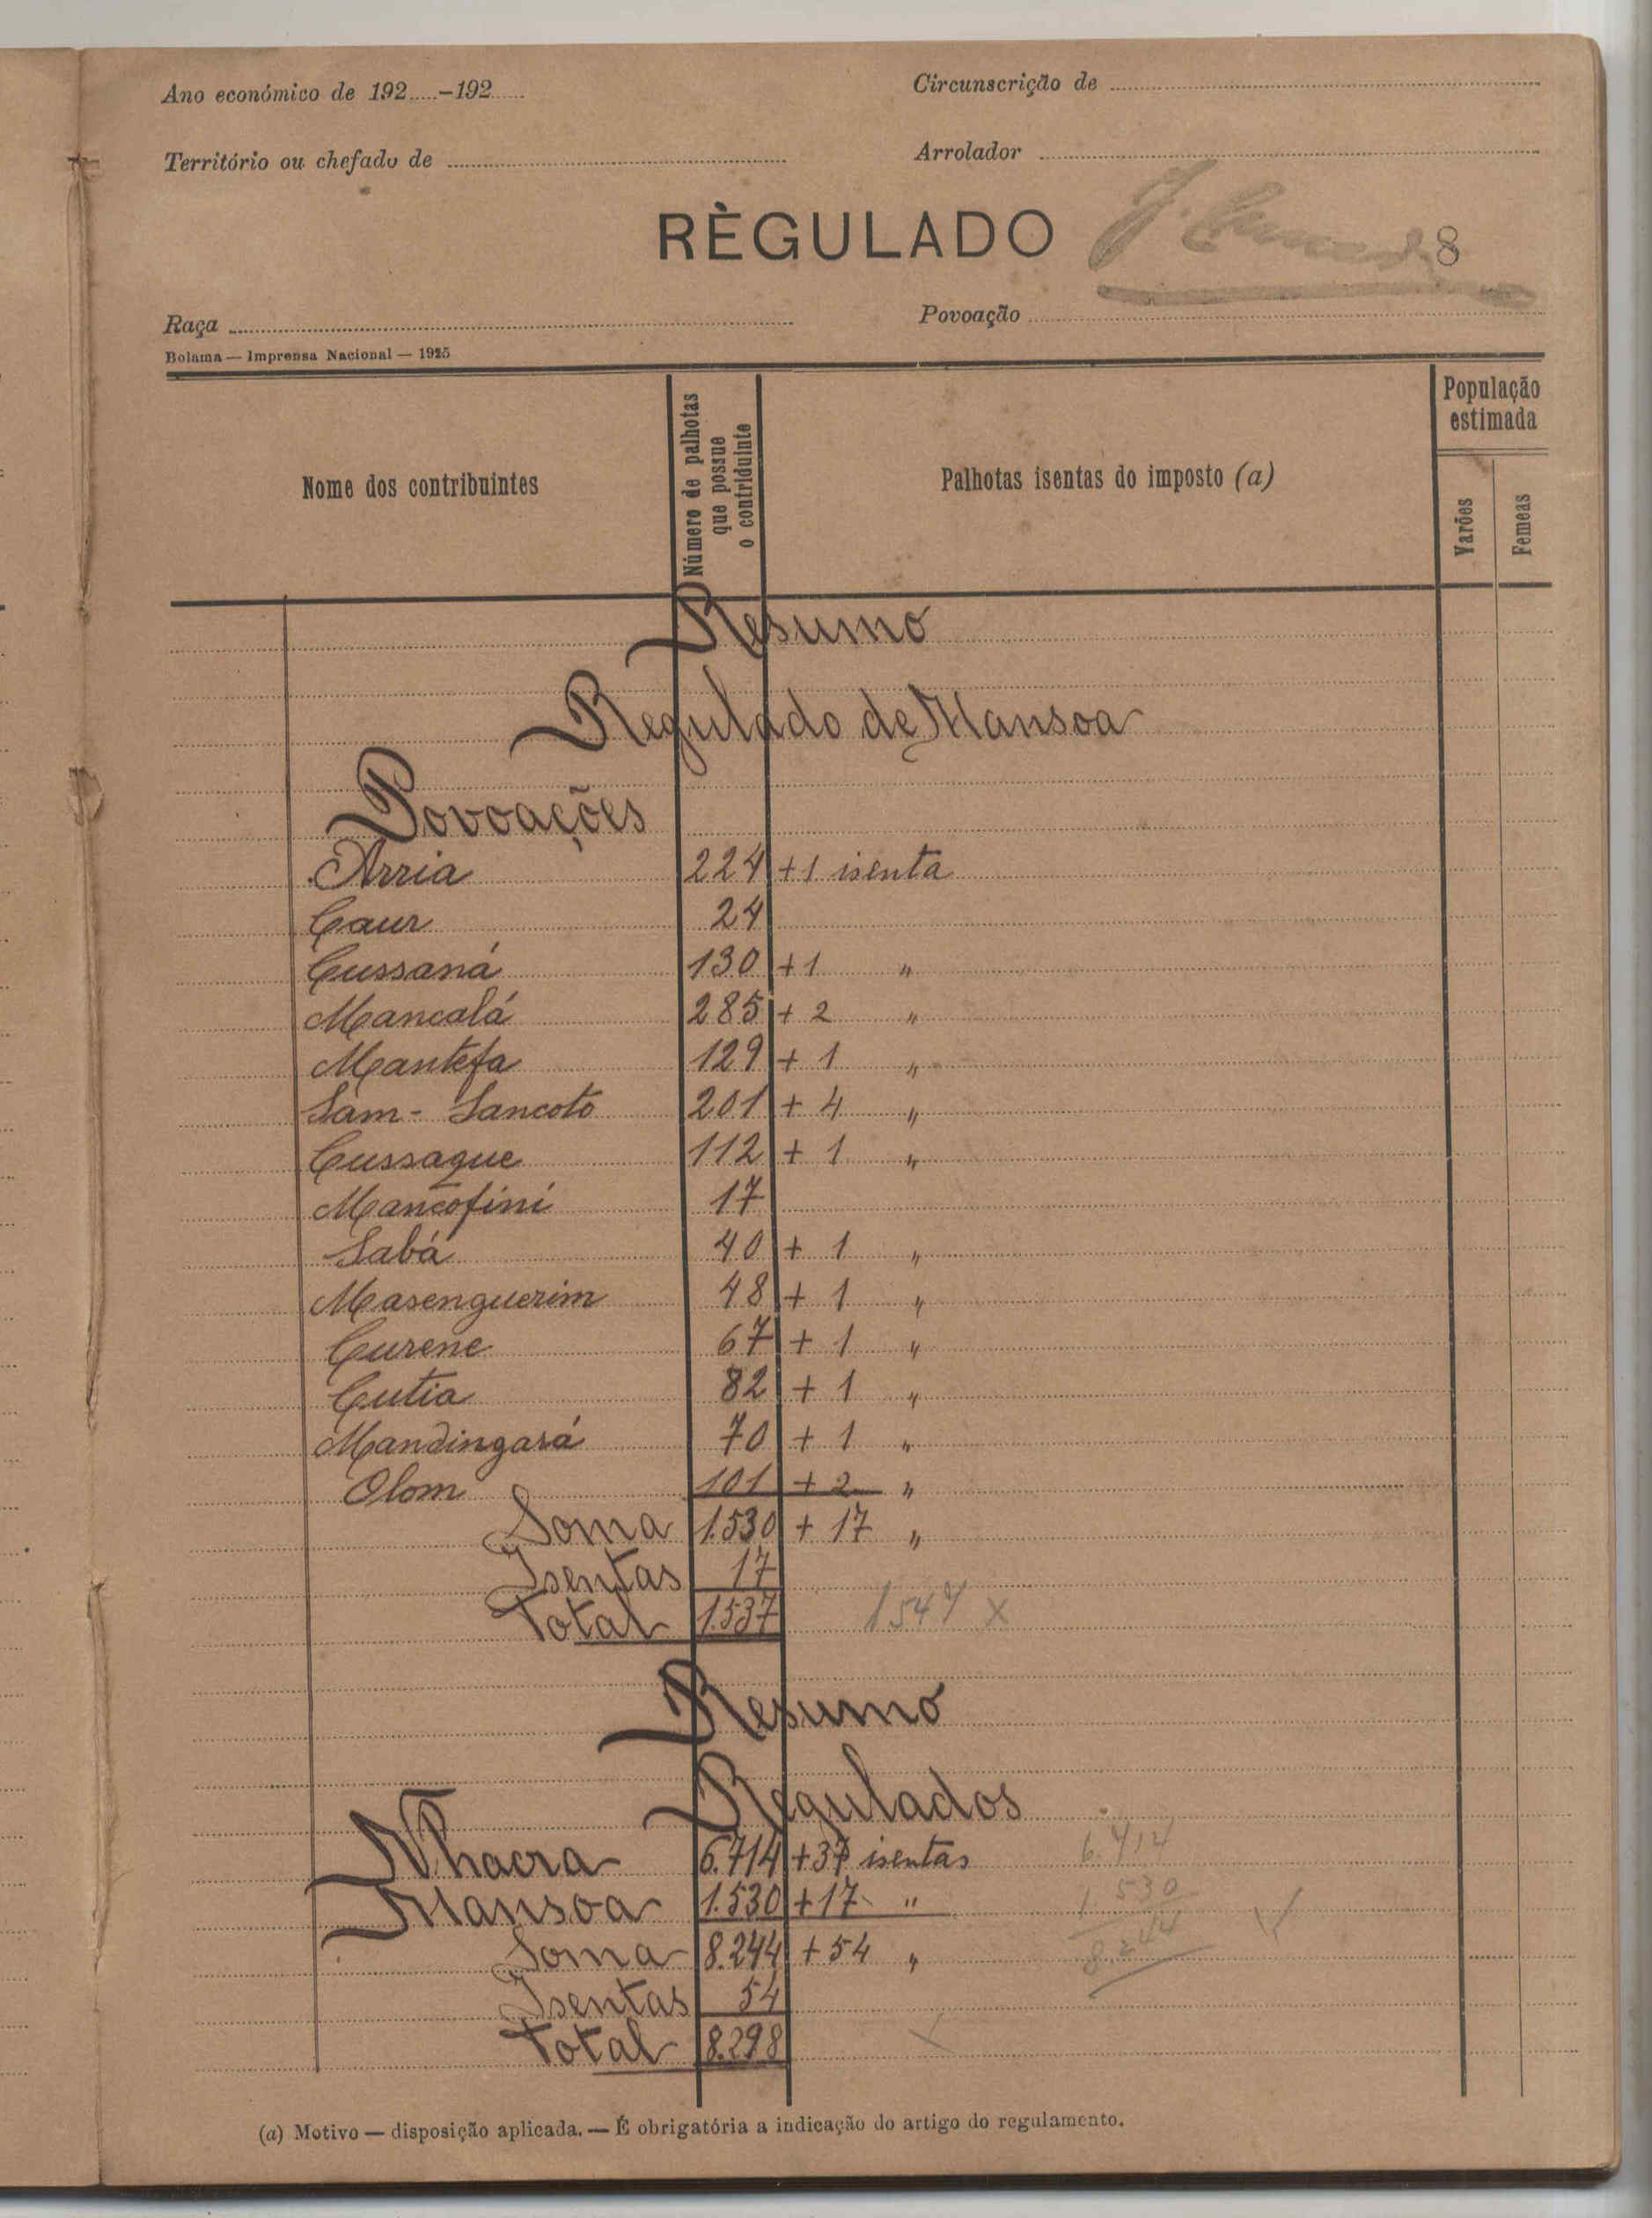 Ano económico de 192.....-192......
Circunscrição de
Território ou chefado de
Arrolador
RÈGULADO
8
Raça
Povoação
Bolama — Imprensa Nacional — 1925
Nome dos contribuintes
Número de palhotas que possue o contriduinte
Palhotas isentas do imposto (a)
População estimada
Varões
Femeas
Resumo
Regulado de Mansoa
Povoações
Arria 224 +1 isenta
Caur 24
Cussaná 130 +1 "
Mancalá 285 + 2 "
Mantefa 129 + 1 "
Sam - Sancoto 201 + 4 "
Cussaque 112 + 1 "
Mancofini 17
Sabá 40 + 1 "
Masenguerim 48 + 1 "
Curene 67 + 1 "
Cutia 82 + 1 "
Mandingará 70 + 1 "
Olom 101 + 2 "
Soma 1.530 + 17 "
Isentas 17
Total 1.537 1547 x
Resumo
Regulados
Nhacra 6.714 +37 isentas 6.714
Mansoa 1.530 +17 " 1.530
Soma 8.244 + 54 " 8.244
Isentas 54
Total 8.298
(a) Motivo — disposição aplicada. — É obrigatória a indicação do artigo do regulamento.